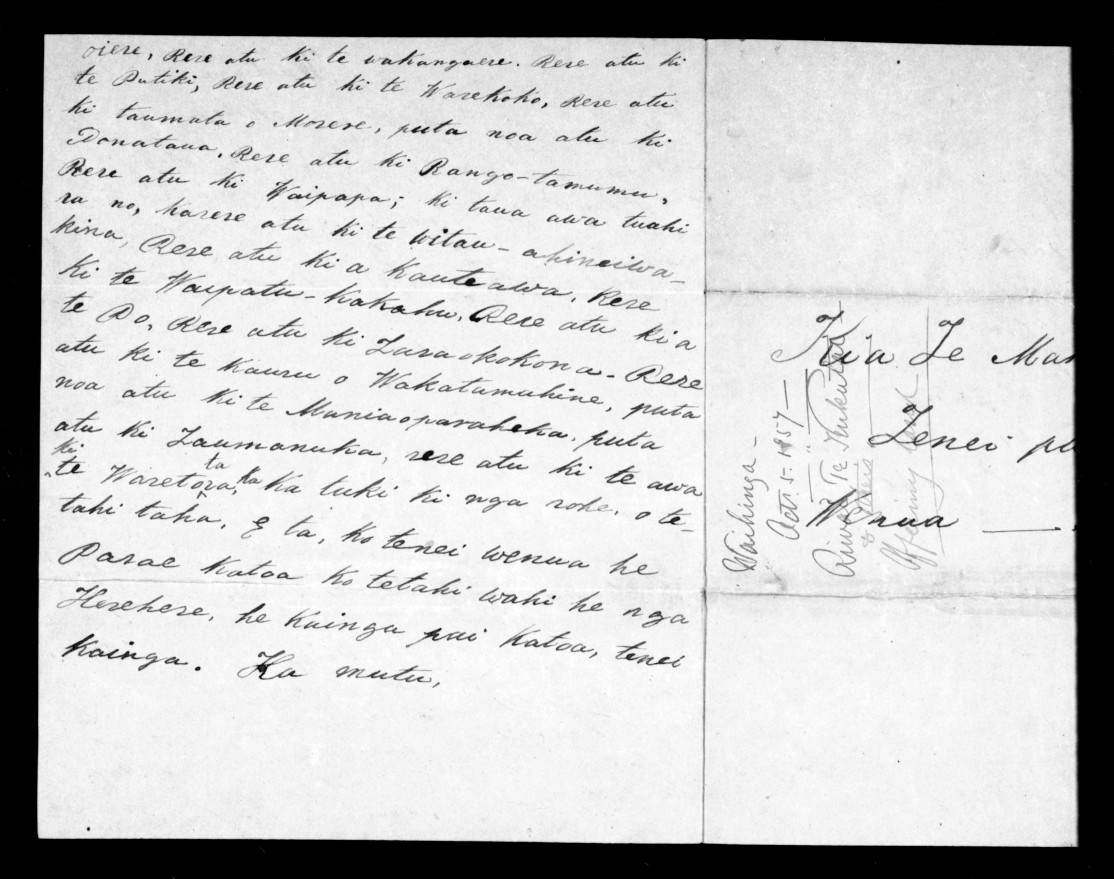 oiere, Rere atu ki te wakangaere. Rere atu ki
te Putiki, Rere atu ki te Warekoko, Rere atu
ki taumata o Morere, puta noa atu ki
Ponataua, Rere atu ki Rango-tamumu,
Rere atu ki Waipapa; ki taua awa tuahi
ra no, karere atu ki te
kina, Rere atu ki a Kauteawa, Rere
Ki te Waipatu-Kakahu, Rere atu ki a
te Po, Rere atu ki Taraokokona-Rere
atu ki te Kauru o Wakatamahine, puta
noa atu ki te Maniaoparaheka, puta
atu ki Taumanuka, rere atu ki te awa
ki te Waretotara, ka Ka tuki ki nga rohe, o te-
tahi taha, E ta, ko tenei wenua he
Parae katoa ko tetahi wahi he nga
Herehere, he Kainga pai Katoa, tenei
Kainga. Ka mutu,
Waihinga -
Oct 5. 1857 -
Te
& others
Offering land
Kia Te Mak
Tenei pu
Wenua